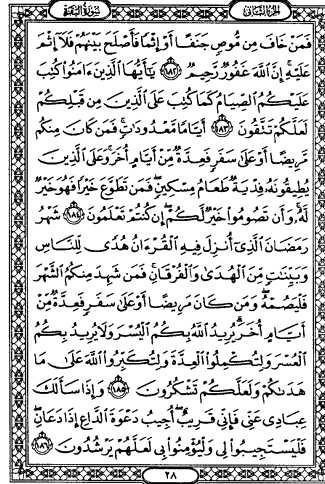 الجزء الثاني
سورة البقرة
فَمَنْ خَافَ مِن مُّوصٍ جَنَفًا أَوْ إِثْمًا فَأَصْلَحَ بَيْنَهُمْ فَلَآ إِثْمَ
عَلَيْهِ إِنَّ ٱللَّهَ غَفُورٌ رَّحِيمٌ ١٨٢ يَٰٓأَيُّهَا ٱلَّذِينَ ءَامَنُوا۟ كُتِبَ
عَلَيْكُمُ ٱلصِّيَامُ كَمَا كُتِبَ عَلَى ٱلَّذِينَ مِن قَبْلِكُمْ
لَعَلَّكُمْ تَتَّقُونَ ١٨٣ أَيَّامًا مَّعْدُودَٰتٍ فَمَن كَانَ مِنكُم
مَّرِيضًا أَوْ عَلَىٰ سَفَرٍ فَعِدَّةٌ مِّنْ أَيَّامٍ أُخَرَ وَعَلَى ٱلَّذِينَ
يُطِيقُونَهُۥ فِدْيَةٌ طَعَامُ مِسْكِينٍ فَمَن تَطَوَّعَ خَيْرًا فَهُوَ خَيْرٌ
لَّهُۥ وَأَن تَصُومُوا۟ خَيْرٌ لَّكُمْ إِن كُنتُمْ تَعْلَمُونَ ١٨٤ شَهْرُ
رَمَضَانَ ٱلَّذِىٓ أُنزِلَ فِيهِ ٱلْقُرْءَانُ هُدًى لِّلنَّاسِ
وَبَيِّنَٰتٍ مِّنَ ٱلْهُدَىٰ وَٱلْفُرْقَانِ فَمَن شَهِدَ مِنكُمُ ٱلشَّهْرَ
فَلْيَصُمْهُ وَمَن كَانَ مَرِيضًا أَوْ عَلَىٰ سَفَرٍ فَعِدَّةٌ مِّنْ
أَيَّامٍ أُخَرَ يُرِيدُ ٱللَّهُ بِكُمُ ٱلْيُسْرَ وَلَا يُرِيدُ بِكُمُ
ٱلْعُسْرَ وَلِتُكْمِلُوا۟ ٱلْعِدَّةَ وَلِتُكَبِّرُوا۟ ٱللَّهَ عَلَىٰ مَا
هَدَىٰكُمْ وَلَعَلَّكُمْ تَشْكُرُونَ ١٨٥ وَإِذَا سَأَلَكَ
عِبَادِى عَنِّى فَإِنِّى قَرِيبٌ أُجِيبُ دَعْوَةَ ٱلدَّاعِ إِذَا دَعَانِ
فَلْيَسْتَجِيبُوا۟ لِى وَلْيُؤْمِنُوا۟ بِى لَعَلَّهُمْ يَرْشُدُونَ ١٨٦
٢٨